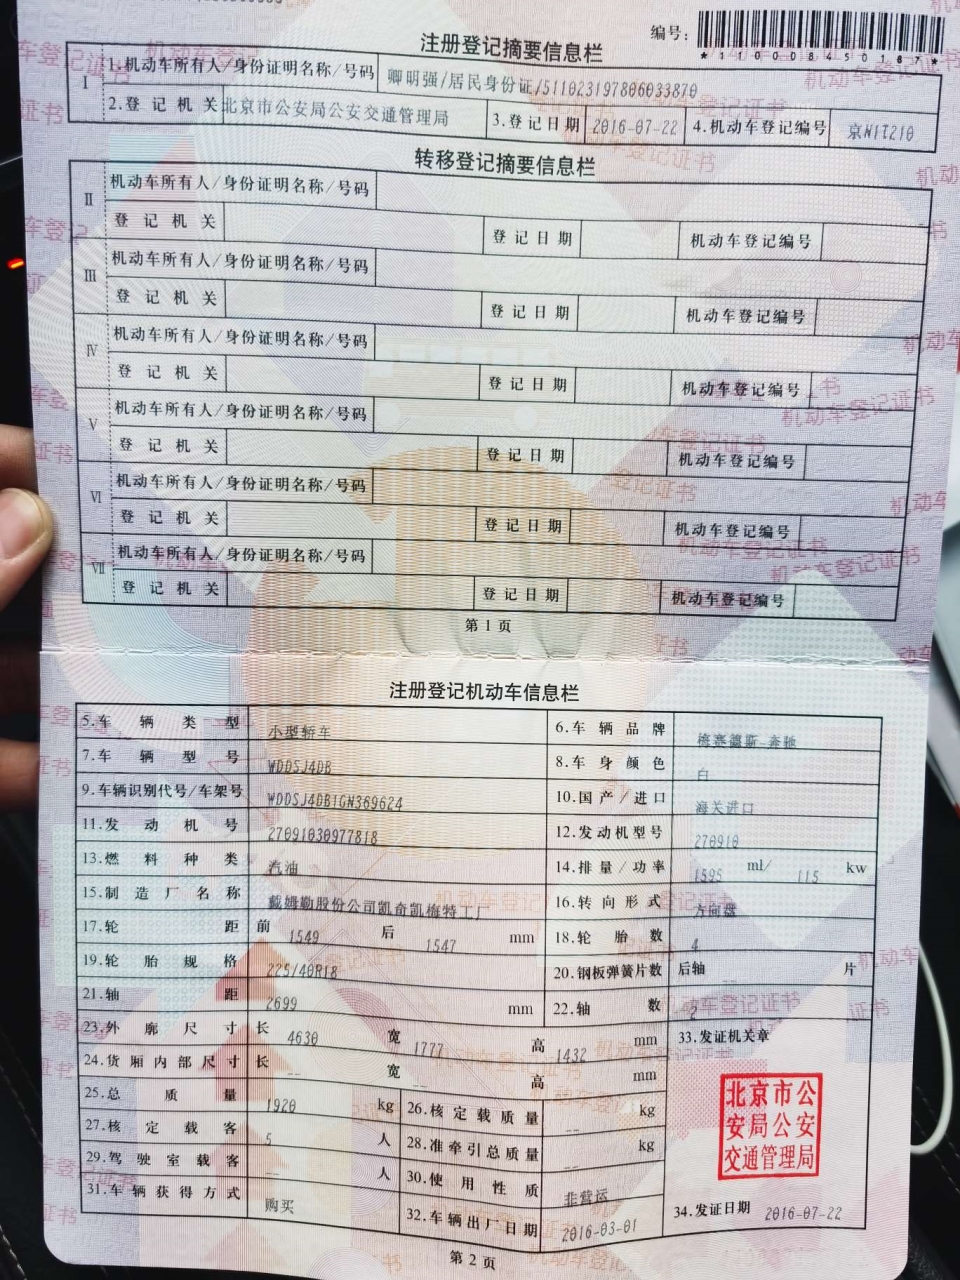 编号：
*110008450187*
注册登记摘要信息栏
I 1.机动车所有人/身份证明名称/号码 卿明强/居民身份证/511023197806033870
2.登记机关 北京市公安局公安交通管理局 3.登记日期 2016-07-22 4.机动车登记编号 京N1T210
转移登记摘要信息栏
II 机动车所有人/身份证明名称/号码
登记机关 登记日期 机动车登记编号
III 机动车所有人/身份证明名称/号码
登记机关 登记日期 机动车登记编号
IV 机动车所有人/身份证明名称/号码
登记机关 登记日期 机动车登记编号
V 机动车所有人/身份证明名称/号码
登记机关 登记日期 机动车登记编号
VI 机动车所有人/身份证明名称/号码
登记机关 登记日期 机动车登记编号
VII 机动车所有人/身份证明名称/号码
登记机关 登记日期 机动车登记编号
第1页
注册登记机动车信息栏
5.车辆类型 小型轿车 6.车辆品牌 梅赛德斯-奔驰
7.车辆型号 WDDSJ4DB 8.车身颜色 白
9.车辆识别代号/车架号 WDDSJ4DB1GN369624 10.国产/进口 海关进口
11.发动机号 27091030977818 12.发动机型号 270910
13.燃料种类 汽油 14.排量/功率 1595 ml/ 115 kw
15.制造厂名称 戴姆勒股份公司凯奇凯梅特工厂 16.转向形式 方向盘
17.轮距 前 1549 后 1547 mm 18.轮胎数 4
19.轮胎规格 225/40R18 20.钢板弹簧片数 后轴 -- 片
21.轴距 2699 mm 22.轴数 2
23.外廓尺寸 长 4630 宽 1777 高 1432 mm 33.发证机关章
24.货厢内部尺寸 长 -- 宽 -- 高 -- mm
25.总质量 1920 kg 26.核定载质量 -- kg
27.核定载客 5 人 28.准牵引总质量 -- kg
29.驾驶室载客 -- 人 30.使用性质 非营运
31.车辆获得方式 购买 32.车辆出厂日期 2016-03-01 34.发证日期 2016-07-22
北京市公
安局公安
交通管理局
第2页